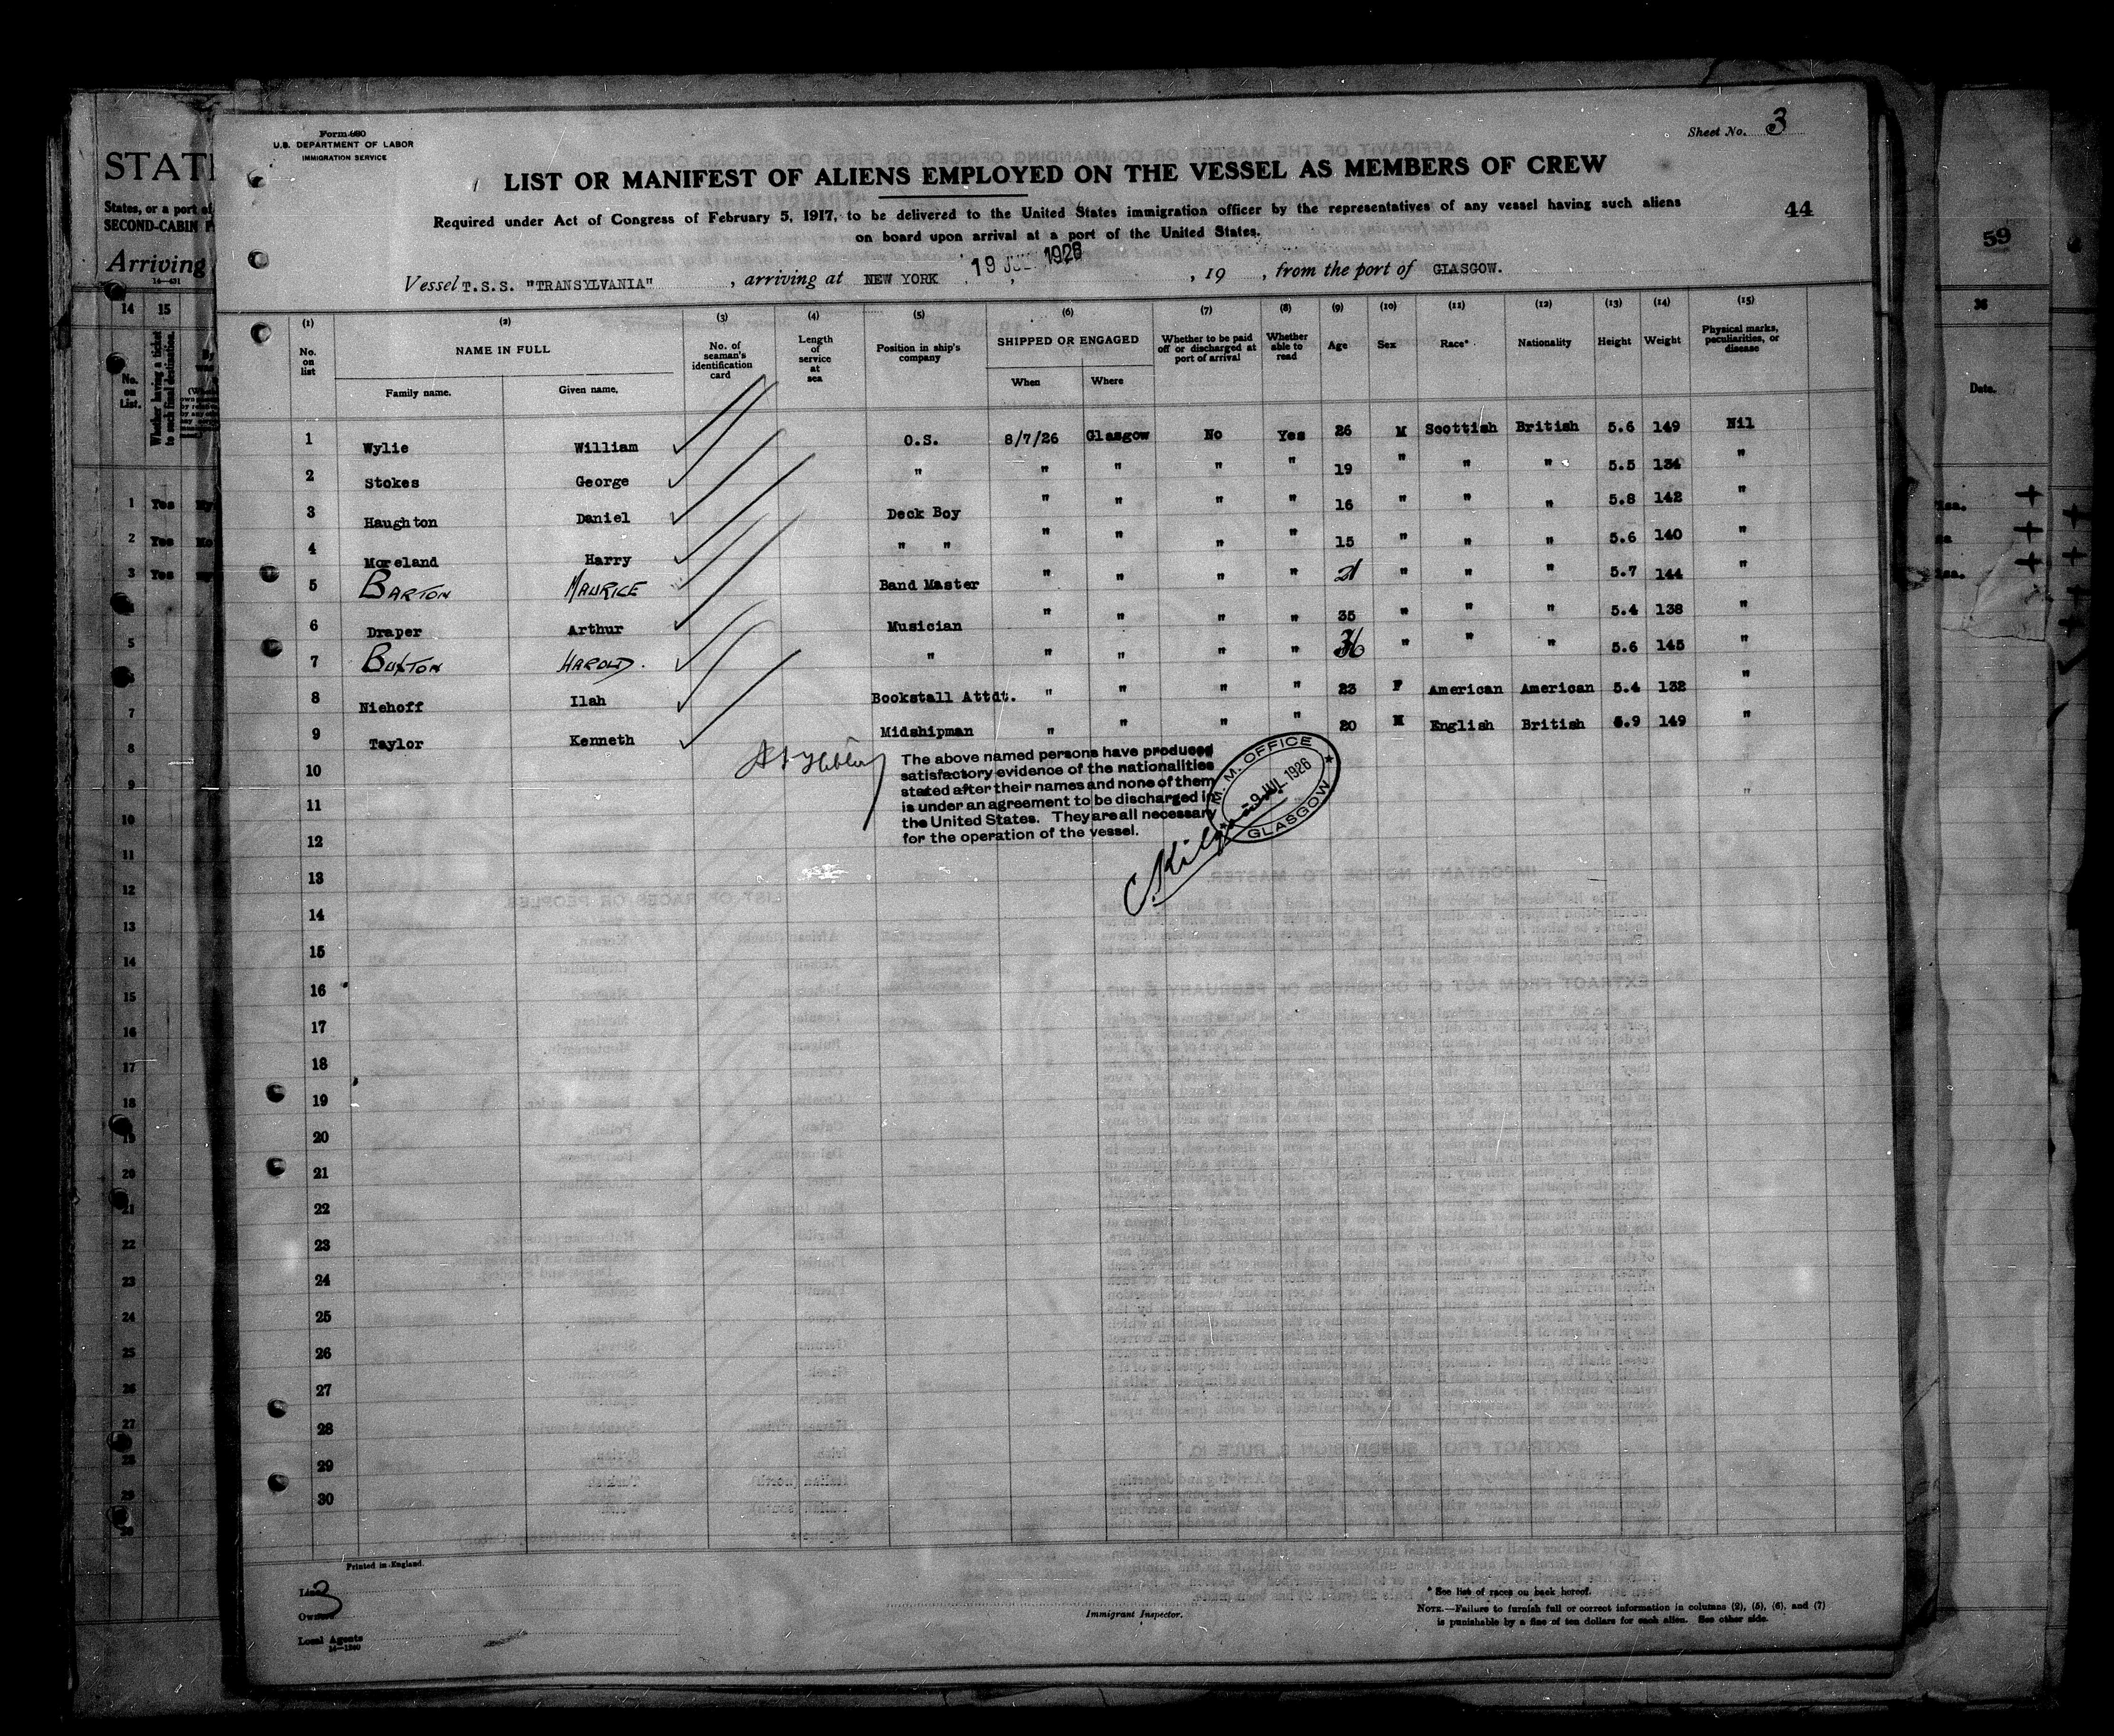 Form 680
U.S. DEPARTMENT OF LABOR
IMMIGRATION SERVICE
Sheet No. 3
LIST OR MANIFEST OF ALIENS EMPLOYED ON THE VESSEL AS MEMBERS OF CREW
Required under Act of Congress of February 5, 1917, to be delivered to the United States immigration officer by the representatives of any vessel having such aliens
on board upon arrival at a port of the United States.
44
Vessel T.S.S. "TRANSYLVANIA" , arriving at NEW YORK 19 JUL 1926 , 19 , from the port of GLASGOW.
(1) (2) (3) (4) (5) (6) (7) (8) (9) (10) (11) (12) (13) (14) (15)
No. on list NAME IN FULL Family name. Given name. No. of seaman's identification card Length of service at sea Position in ship's company SHIPPED OR ENGAGED When Where Whether to be paid off or discharged at port of arrival Whether able to read Age Sex Race* Nationality Height Weight Physical marks, peculiarities, or disease
1 Wylie William O.S. 8/7/26 Glasgow No Yes 26 M Scottish British 5.6 149 Nil
2 Stokes George " " " " " 19 " " " 5.5 134 "
3 Haughton Daniel Deck Boy " " " " 16 " " " 5.8 142 "
4 Moreland Harry " " " " " " 15 " " " 5.6 140 "
5 BARTON MAURICE Band Master " " " " 21 " " " 5.7 144 "
6 Draper Arthur Musician " " " " 35 " " " 5.4 138 "
7 BUXTON HAROLD. " " " " " 36 " " " 5.6 145 "
8 Niehoff Ilah Bookstall Attdt. " " " " 23 F American American 5.4 132 "
9 Taylor Kenneth Midshipman " " " " 20 M English British 5.9 149 "
The above named persons have produced
satisfactory evidence of the nationalities
stated after their names and none of them
is under an agreement to be discharged in
the United States. They are all necessary
for the operation of the vessel.
M. M. OFFICE
9 JUL 1926
GLASGOW
10
11
12
13
14
15
16
17
18
19
20
21
22
23
24
25
26
27
28
29
30
Printed in England.
Line 3
Owners
Local Agents
14—1240
Immigrant Inspector.
* See list of races on back hereof.
NOTE.—Failure to furnish full or correct information in columns (2), (5), (6), and (7)
is punishable by a fine of ten dollars for each alien. See other side.
STATE
States, or a port of
SECOND-CABIN
Arriving
14 15
No. on List. Whether having a ticket to such final destination.
1 Yes
2 Yes
3 Yes
59
36
Date.